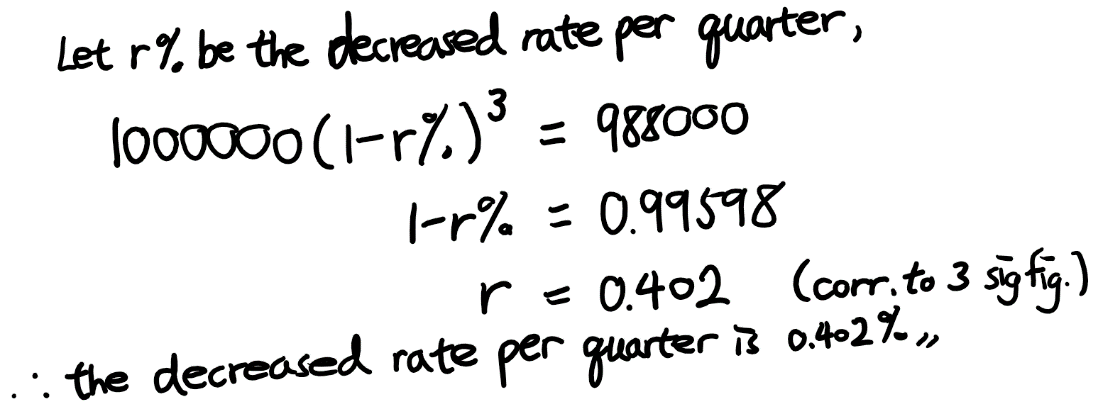 Let r% be the decreased rate per quarter,
1000000(1-r%)³ = 988000
1-r% = 0.99598
r = 0.402 (corr. to 3 sig fig.)
∴ the decreased rate per quarter is 0.402%,,